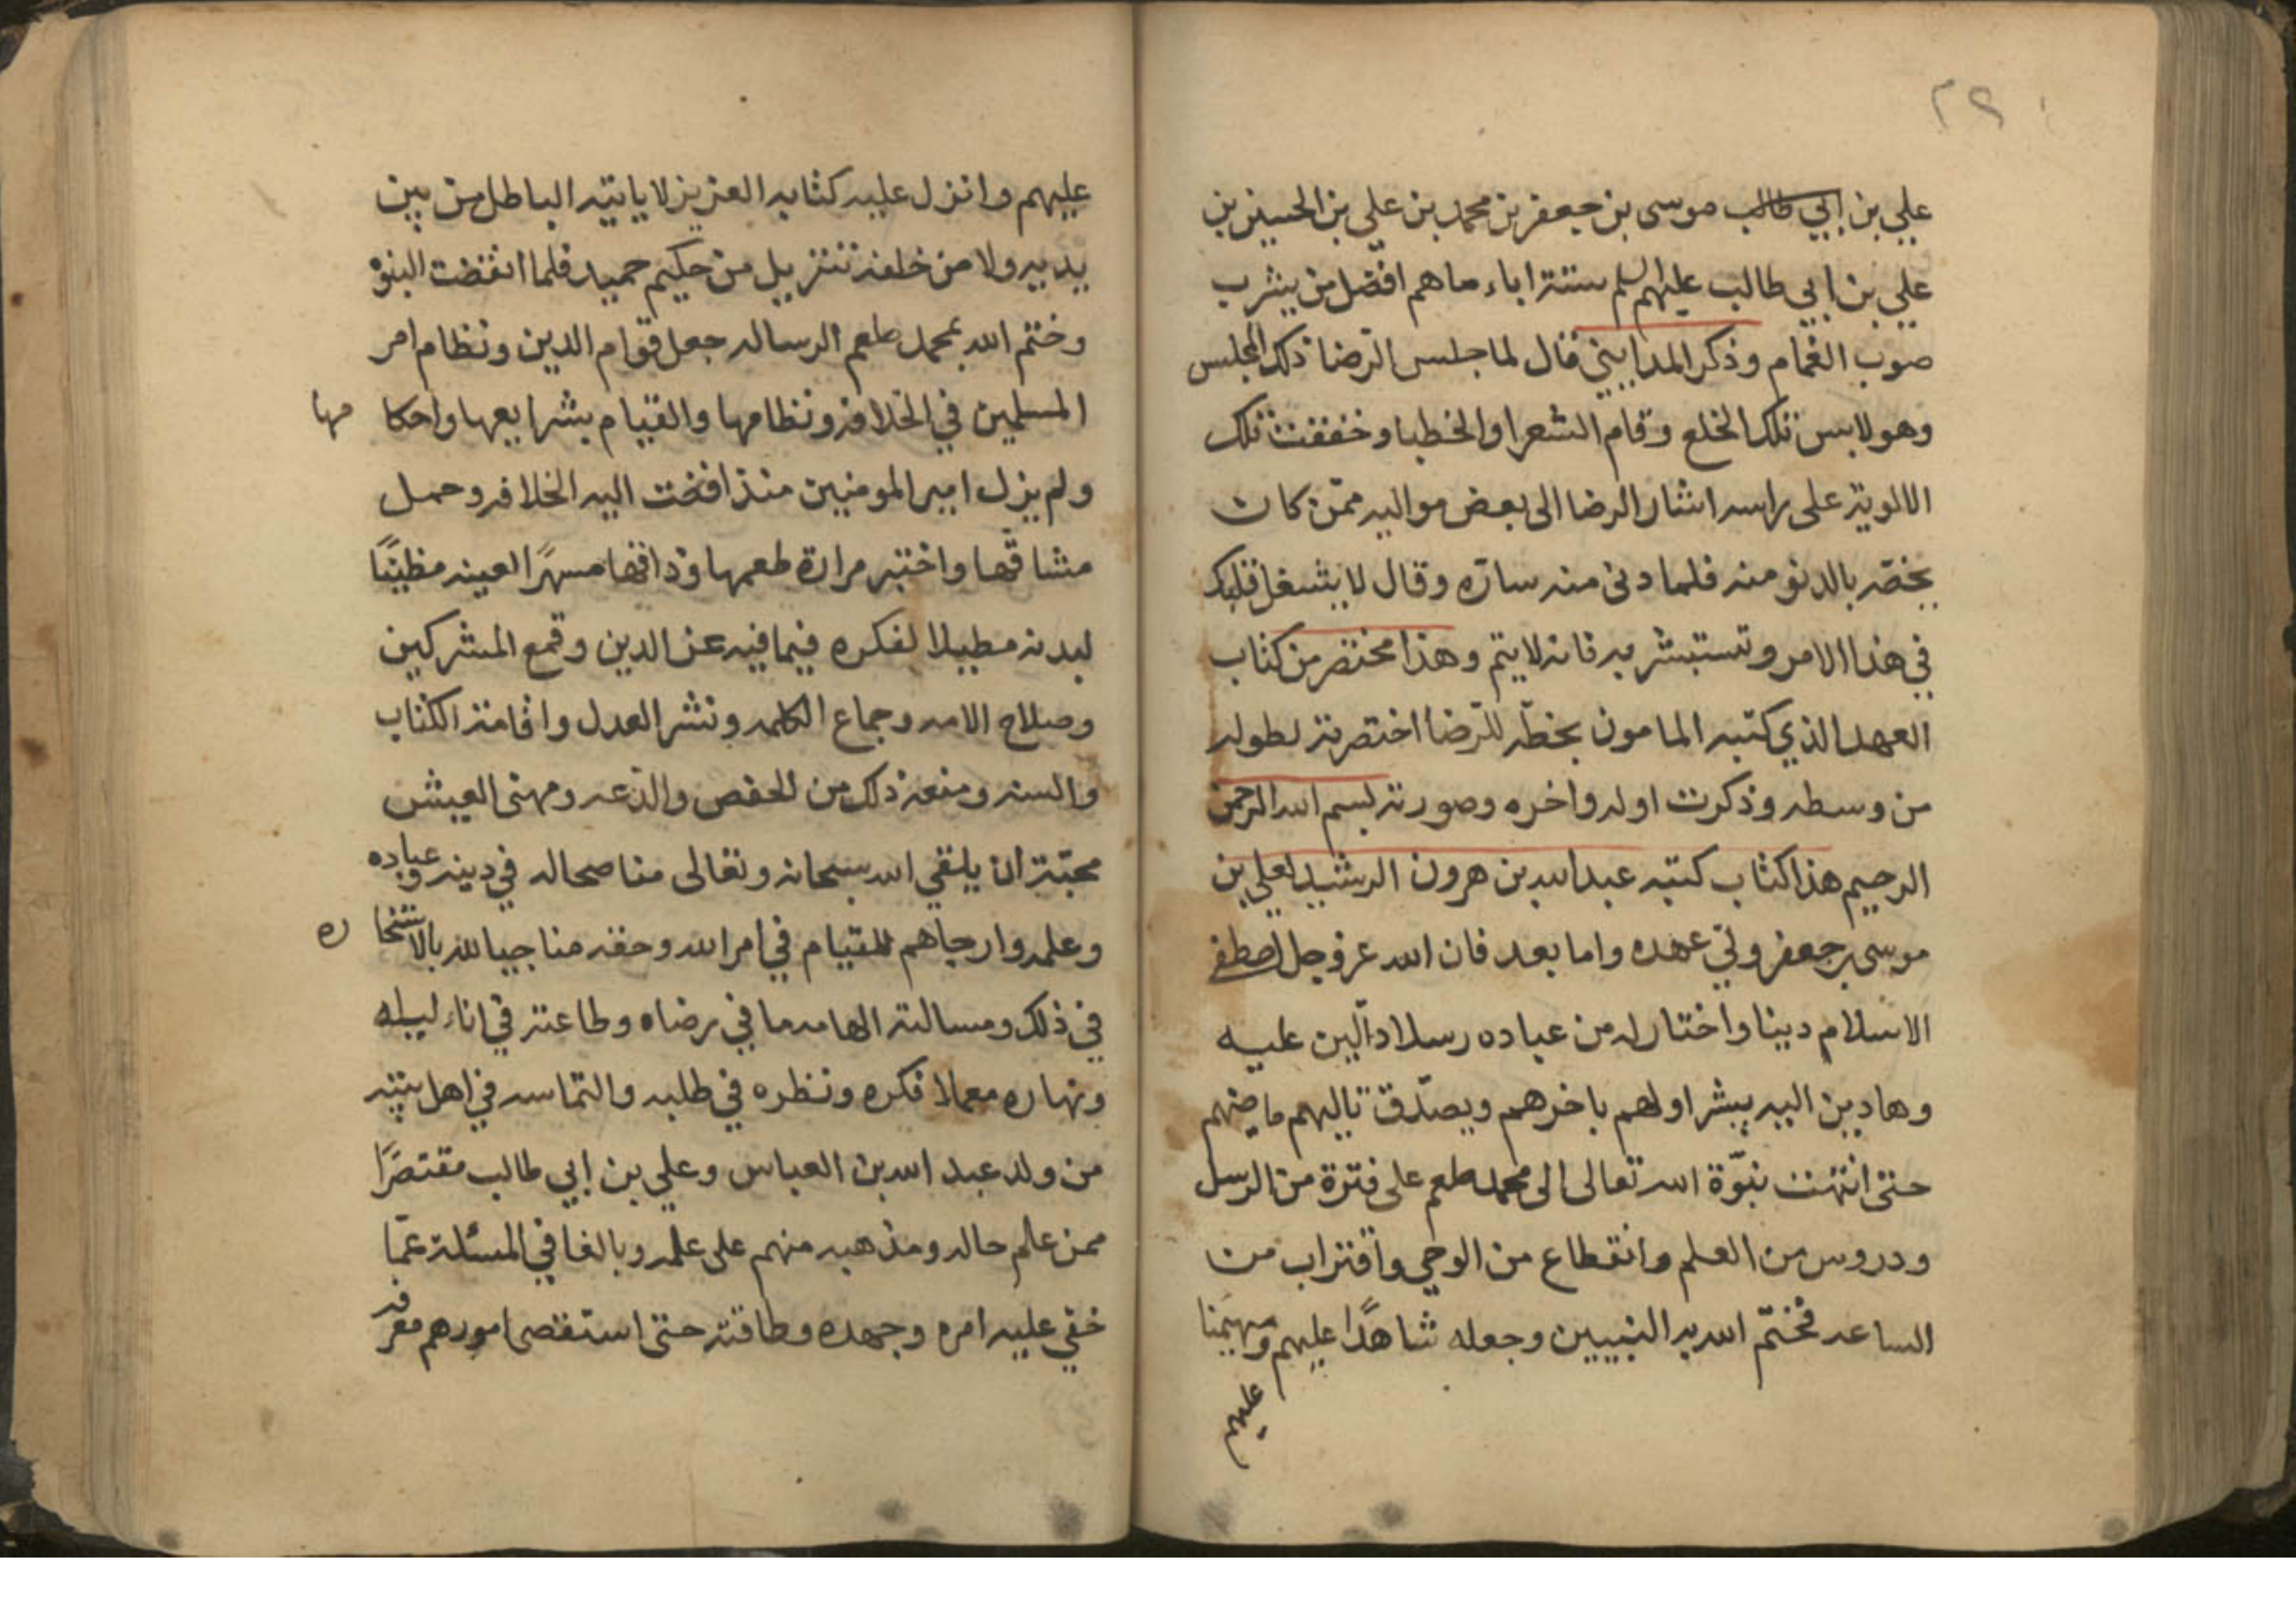 ٢٩
علي بن ابي طالب موسى بن جعفر بن محمد بن علي بن الحسين بن
علي بن ابي طالب عليهم السلم ستة اباء ما هم افضل من يشرب
صوب الغمام وذكر المدايني قال لما جلس الرّضا ذلك المجلس
وهو لابس تلك الخلع وقام الشعرا والخطبا وخفقت تلك
الالوية على راسه اشار الرضا الى بعض مواليه ممّن كان
يخصّه بالدنو منه فلما دنى منه سارّه وقال لا يشغل قلبك
في هذا الامر وتستبشر به فانه لا يتم وهذا مختصر من كتاب
العهد الذي كتبه المامون بخطّه للرّضا اختصرته لطوله
من وسطه وذكرت اوله واخره وصورته بسم الله الرحمن
الرحيم هذا كتاب كتبه عبد الله بن هرون الرشيد لعلي بن
موسى بن جعفر وليّ عهده واما بعد فان الله عز وجل اصطفى
الاسلام دينا واختار له من عباده رسلا دالّين عليه
وهادين اليه يبشر اولهم باخرهم ويصدّق تاليهم ماضيهم
حتى انتهت نبوّة الله تعالى الى محمد صلعم على فترة من الرسل
ودروس من العلم وانقطاع من الوحي واقتراب من
الساعه فختم الله به النبيين وجعله شاهدًا عليهم ومهيمنا
عليهم
عليهم وانزل عليه كتابه العزيز لا ياتيه الباطل من بين
يديه ولا من خلفه تنزيل من حكيم حميد فلما انقضت النبوة
وختم الله بمحمد صلعم الرساله جعل قوام الدين ونظام امر
المسلمين في الخلافة ونظامها والقيام بشرايعها واحكا مها
ولم يزل امير المومنين منذ افضت اليه الخلافه وحمل
مشاقّها واختبر مرارة طعمها وذاقها مسهرًا لعينه
لبدنه مطيلا لفكره فيما فيه عز الدين وقمع المشركين
وصلاح الامه وجماع الكلمه ونشر العدل واقامة الكتاب
والسنه ومنعه ذلك من الخفض والدّعه ومهنى العيش
محبّة ان يلقي الله سبحانه وتعالى مناصحا له في دينه وعباده
وعلمه وارجاهم للقيام في امر الله وحقه مناجيا لله بالاستخا ره
في ذلك ومسالته الهامه ما في رضاه وطاعته في اناء ليله
ونهاره معملا فكره ونظره في طلبه والتماسه في اهل بيته
من ولد عبد الله بن العباس وعلي بن ابي طالب مقتصرًا
ممن علم حاله ومذهبه منهم على علمه وبالغا في المسئلة عمّا
خفي عليه امره وجهده وطاقته حتى استقصى امورهم معرفه